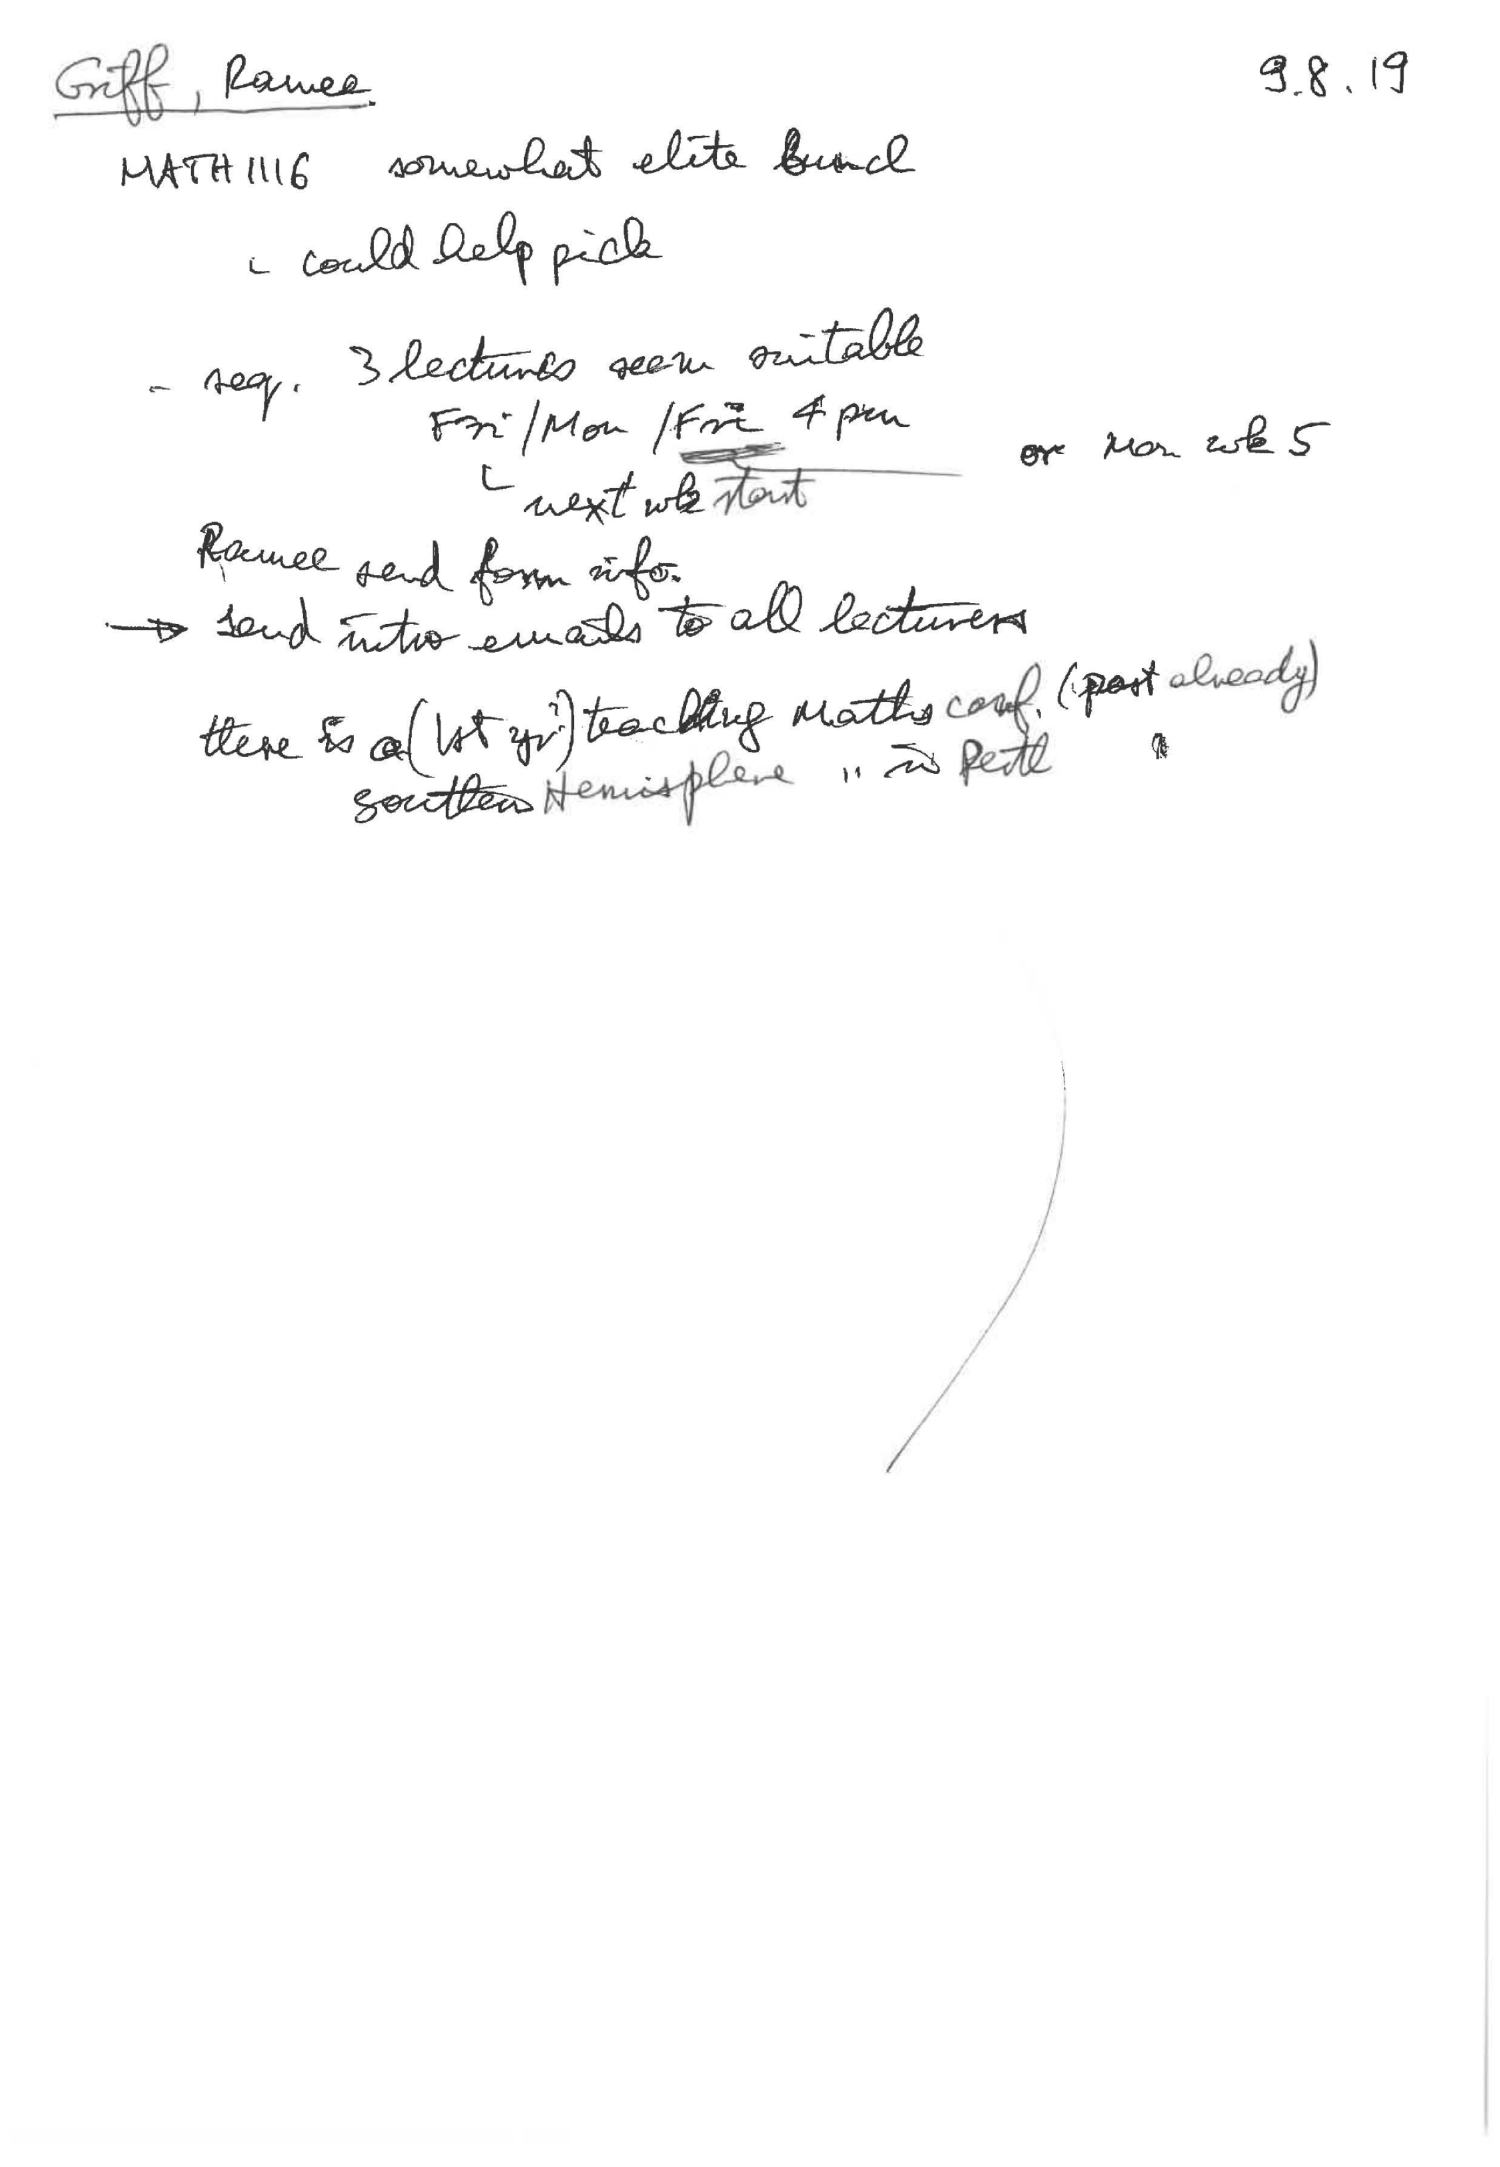 Griff, Ramee. 9.8.19
MATH1116 somewhat elite bunch
- could help pick
- seq. 3 lectures seem suitable
Fri/Mon/Fri 4pm or Mon wk 5
next wk start
Ramee send form info.
→ send intro emails to all lecturers
there is a (1st yr?) teaching Maths conf. (past already)
southern Hemisphere " in Perth